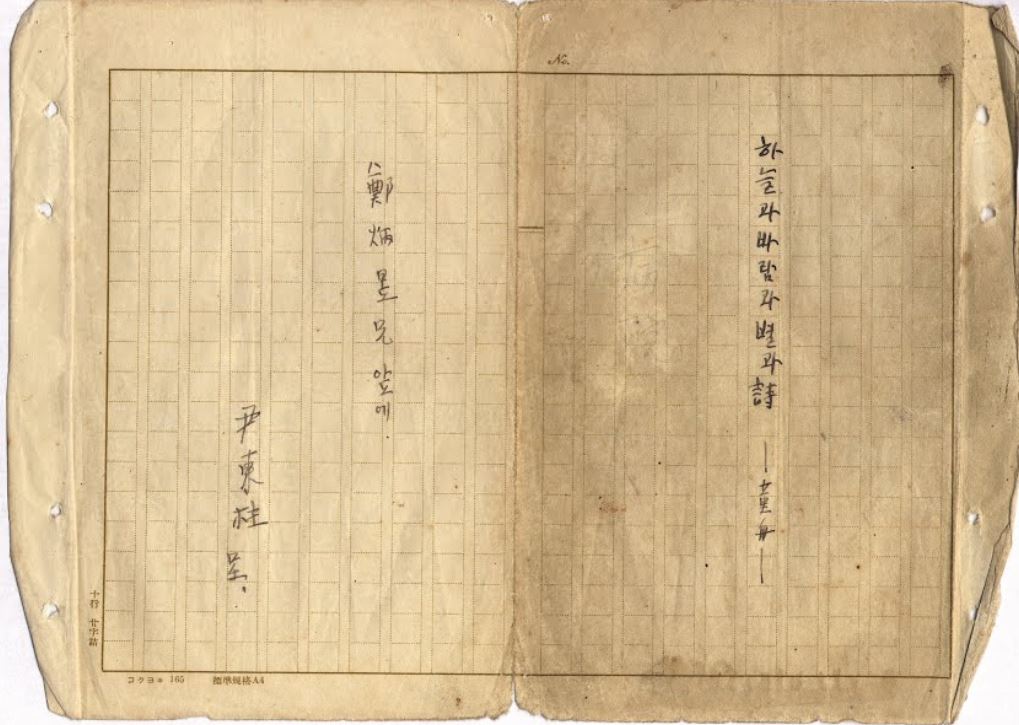 No.
하늘과바람과별과詩
—童舟—
鄭炳昱兄앞에
尹東柱 呈.
十行 廿字詰
コクヨ 165 標準規格A4